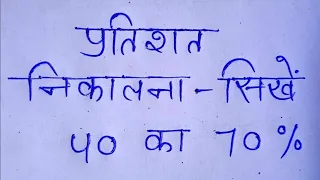 प्रतिशत
निकालना - सिखें
५० का 70%